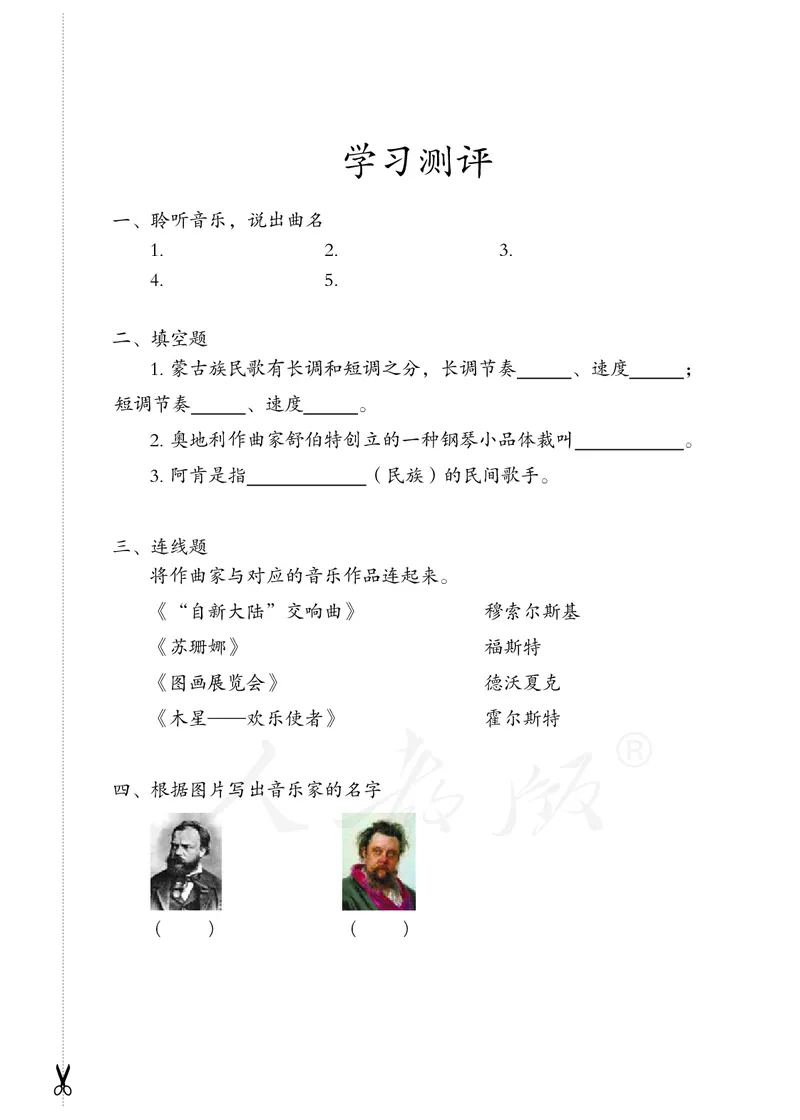 学习测评
一、聆听音乐，说出曲名
1. 2. 3.
4. 5.
二、填空题
1. 蒙古族民歌有长调和短调之分，长调节奏______、速度______；
短调节奏______、速度______。
2. 奥地利作曲家舒伯特创立的一种钢琴小品体裁叫____________。
3. 阿肯是指_____________（民族）的民间歌手。
三、连线题
将作曲家与对应的音乐作品连起来。
《“自新大陆”交响曲》 穆索尔斯基
《苏珊娜》 福斯特
《图画展览会》 德沃夏克
《木星——欢乐使者》 霍尔斯特
人教版®
四、根据图片写出音乐家的名字
（ ） （ ）